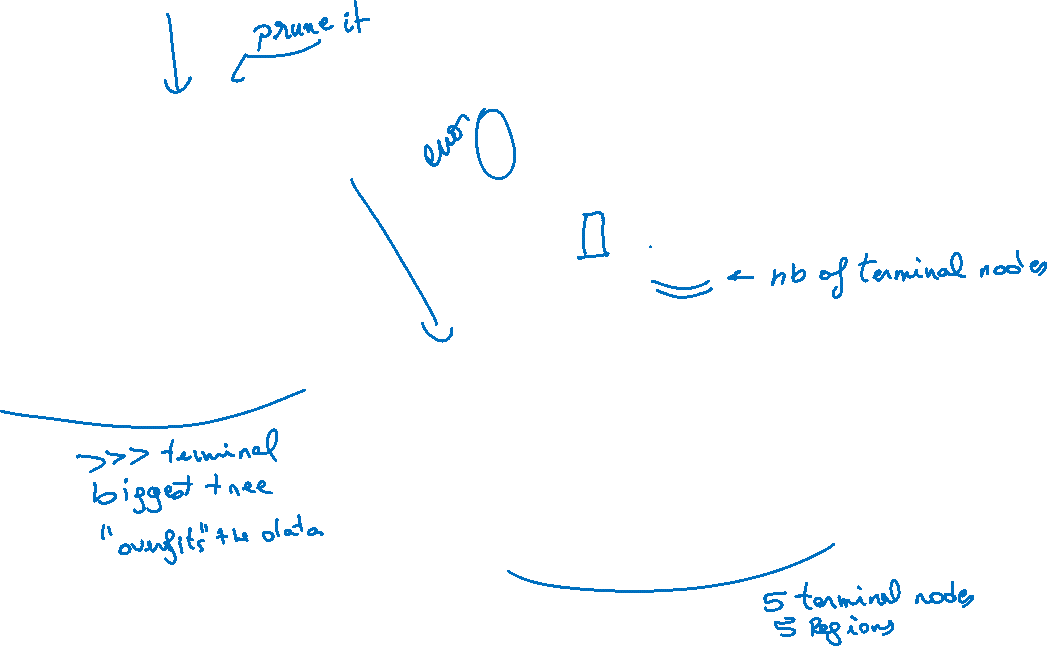 prune it
error
← nb of terminal nodes
>>> terminal
biggest tree
"overfits" the data
5 terminal nodes
5 Regions